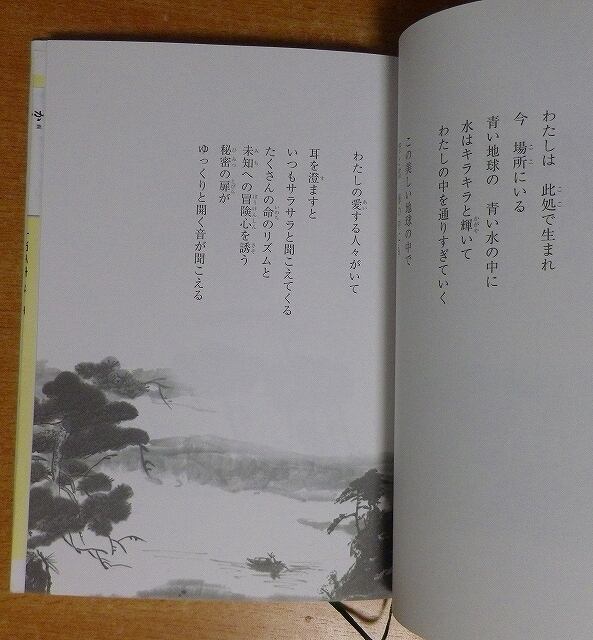 わたしは　此処で生まれ
今　場所にいる
青い地球の　青い水の中に
水はキラキラと輝いて
わたしの中を通りすぎていく
この美しい地球の中で
わたしの愛する人々がいて
耳を澄ますと
いつもサラサラと聞こえてくる
たくさんの命のリズムと
未知への冒険心を誘う
秘密の扉が
ゆっくりと開く音が聞こえる